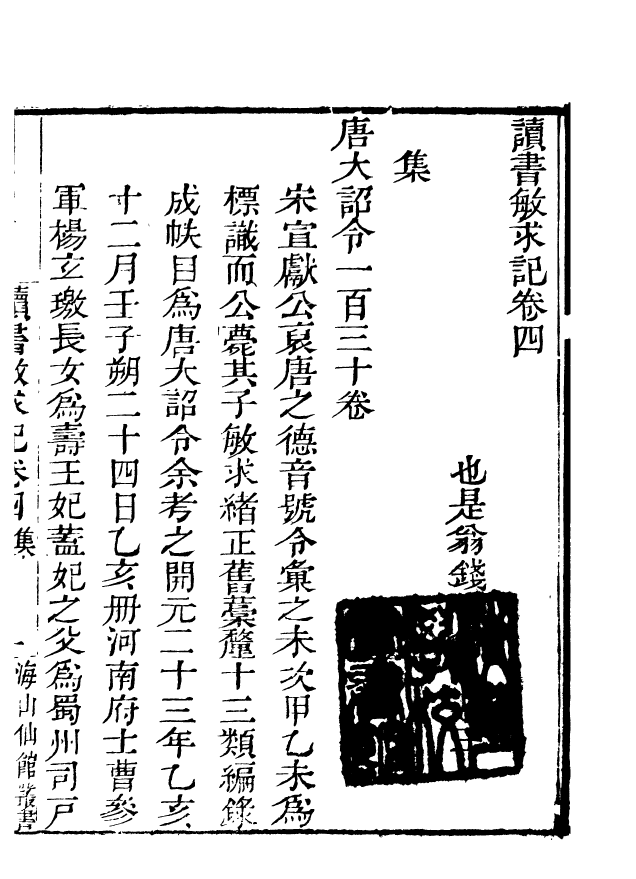 讀書敏求記卷四
也是翁錢
集
唐大詔令一百三十卷
宋宣獻公裒唐之德音號令彙之未次甲乙未爲
標識而公薨其子敏求緒正舊藁釐十三類編錄
成帙目爲唐大詔令余考之開元二十三年乙亥
十二月壬子朔二十四日乙亥册河南府士曹參
軍楊玄璬長女爲壽王妃蓋妃之父爲蜀州司戶
讀書敏求記卷四 集 一 海山仙館叢書